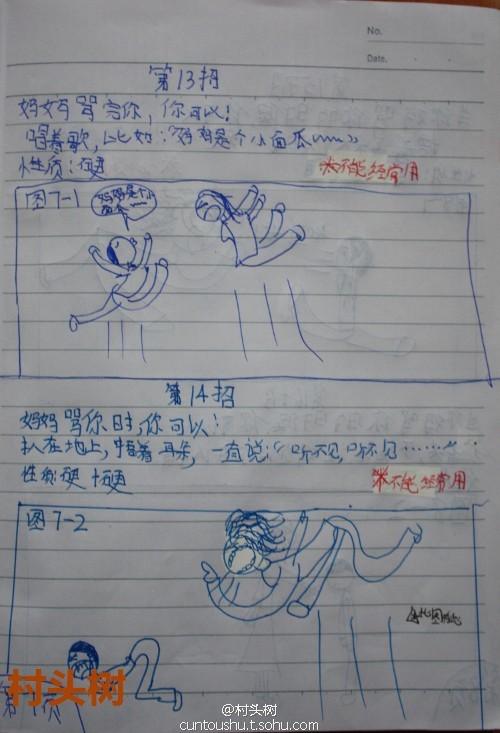 No.
Date.
第13招
妈妈骂完你,你可以!
唱着歌,比如:"妈妈是个小面瓜~~~"
性质:硬
*不能经常用
图7-1
妈妈是个小面瓜
第14招
妈妈骂你时,你可以!
趴在地上,捂着耳朵,一直说:"听不见,听不见……"
硬+硬
*不能经常用
图7-2
村头树
@村头树
cuntoushu.t.sohu.com